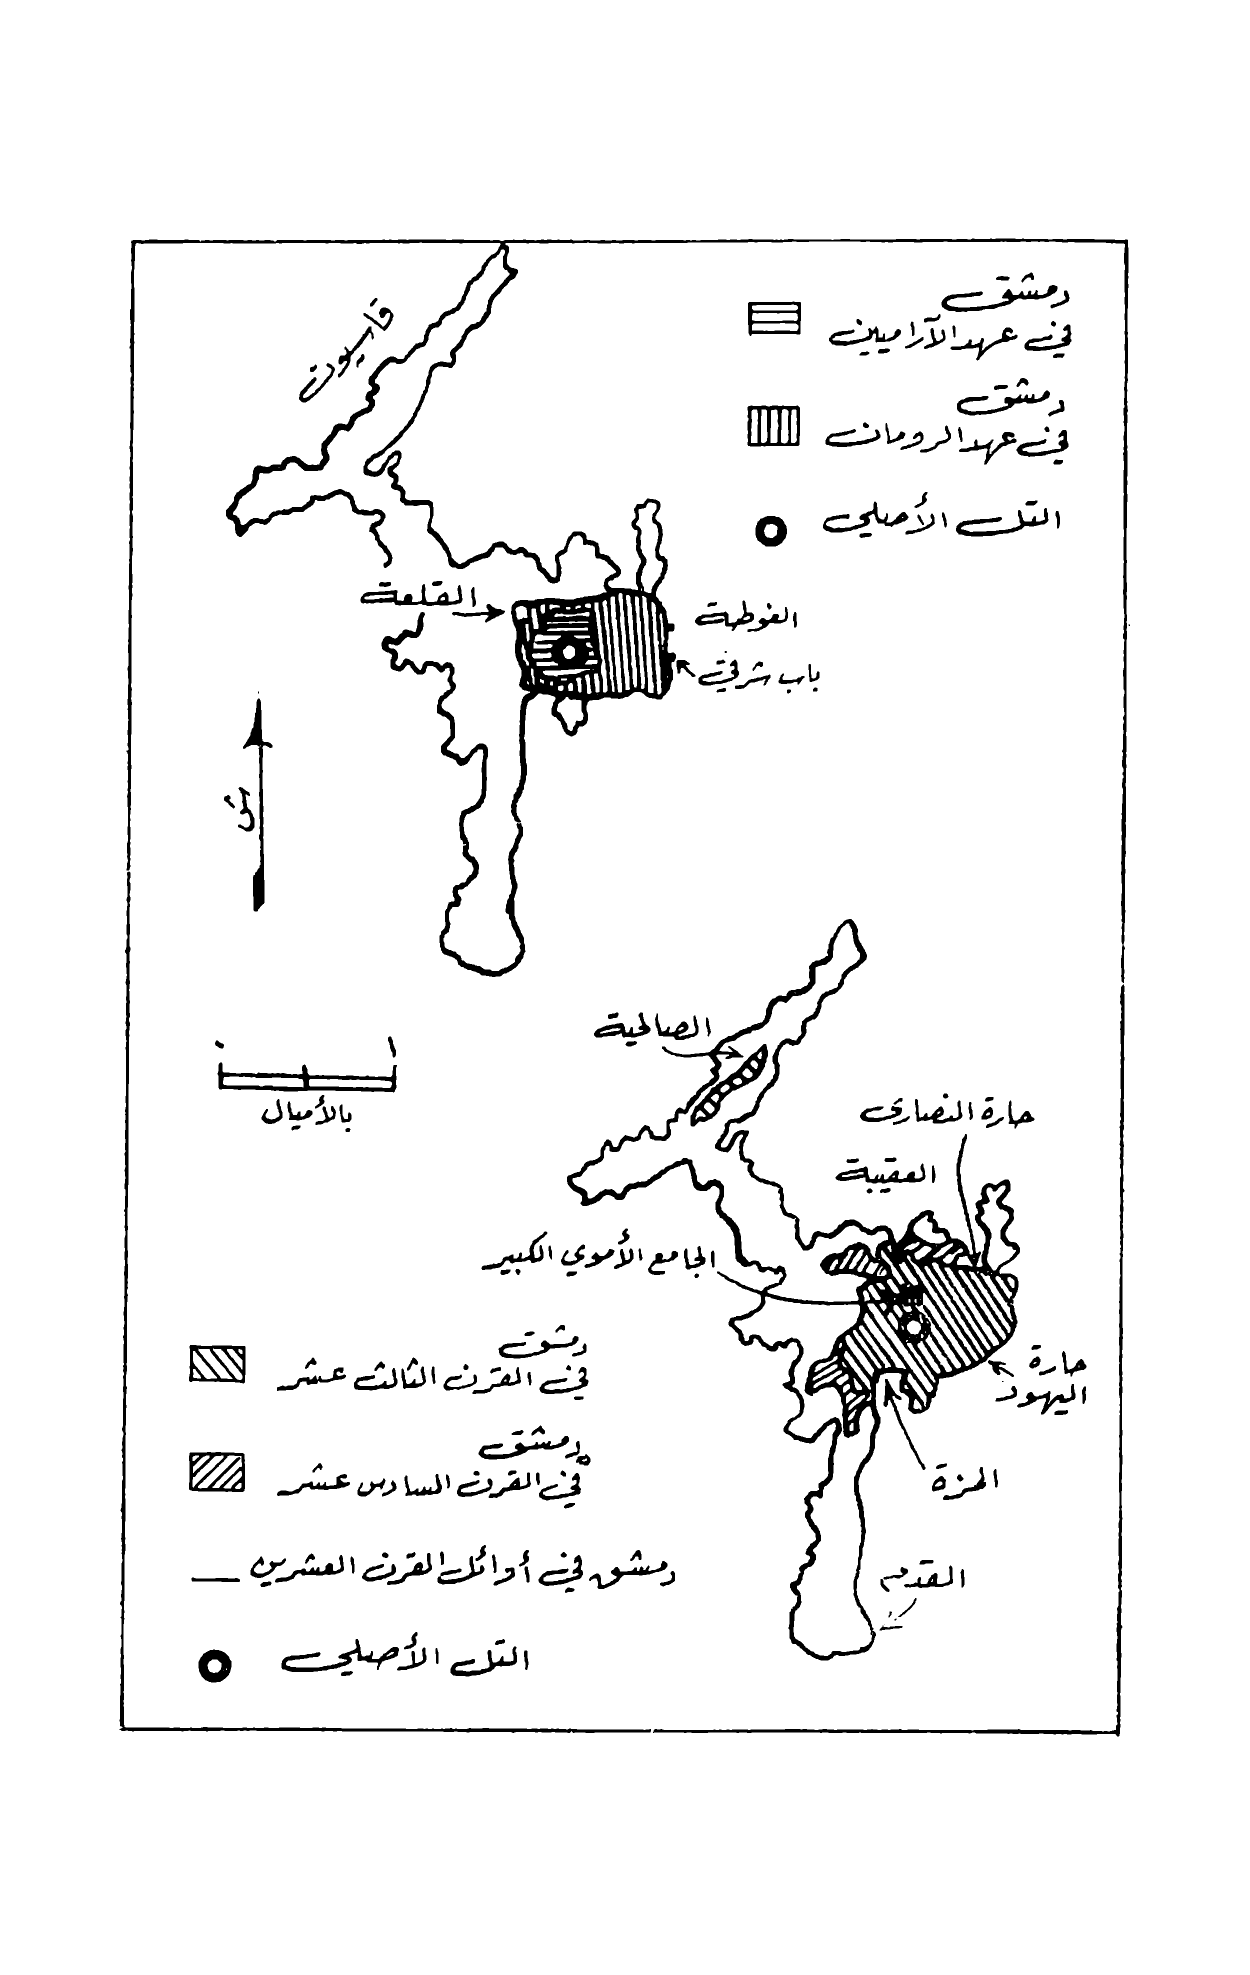 دمشق
في عهد الآراميين
دمشق
في عهد الرومان
التل الأصلي
قاسيون
القلعة
الغوطة
باب شرقي
ش
٠ ١
بالأميال
الصالحية
حارة النصارى
العقيبة
الجامع الأموي الكبير
حارة
اليهود
المزة
القدم
دمشق
في القرن الثالث عشر
دمشق
في القرن السادس عشر
دمشق في أوائل القرن العشرين
التل الأصلي